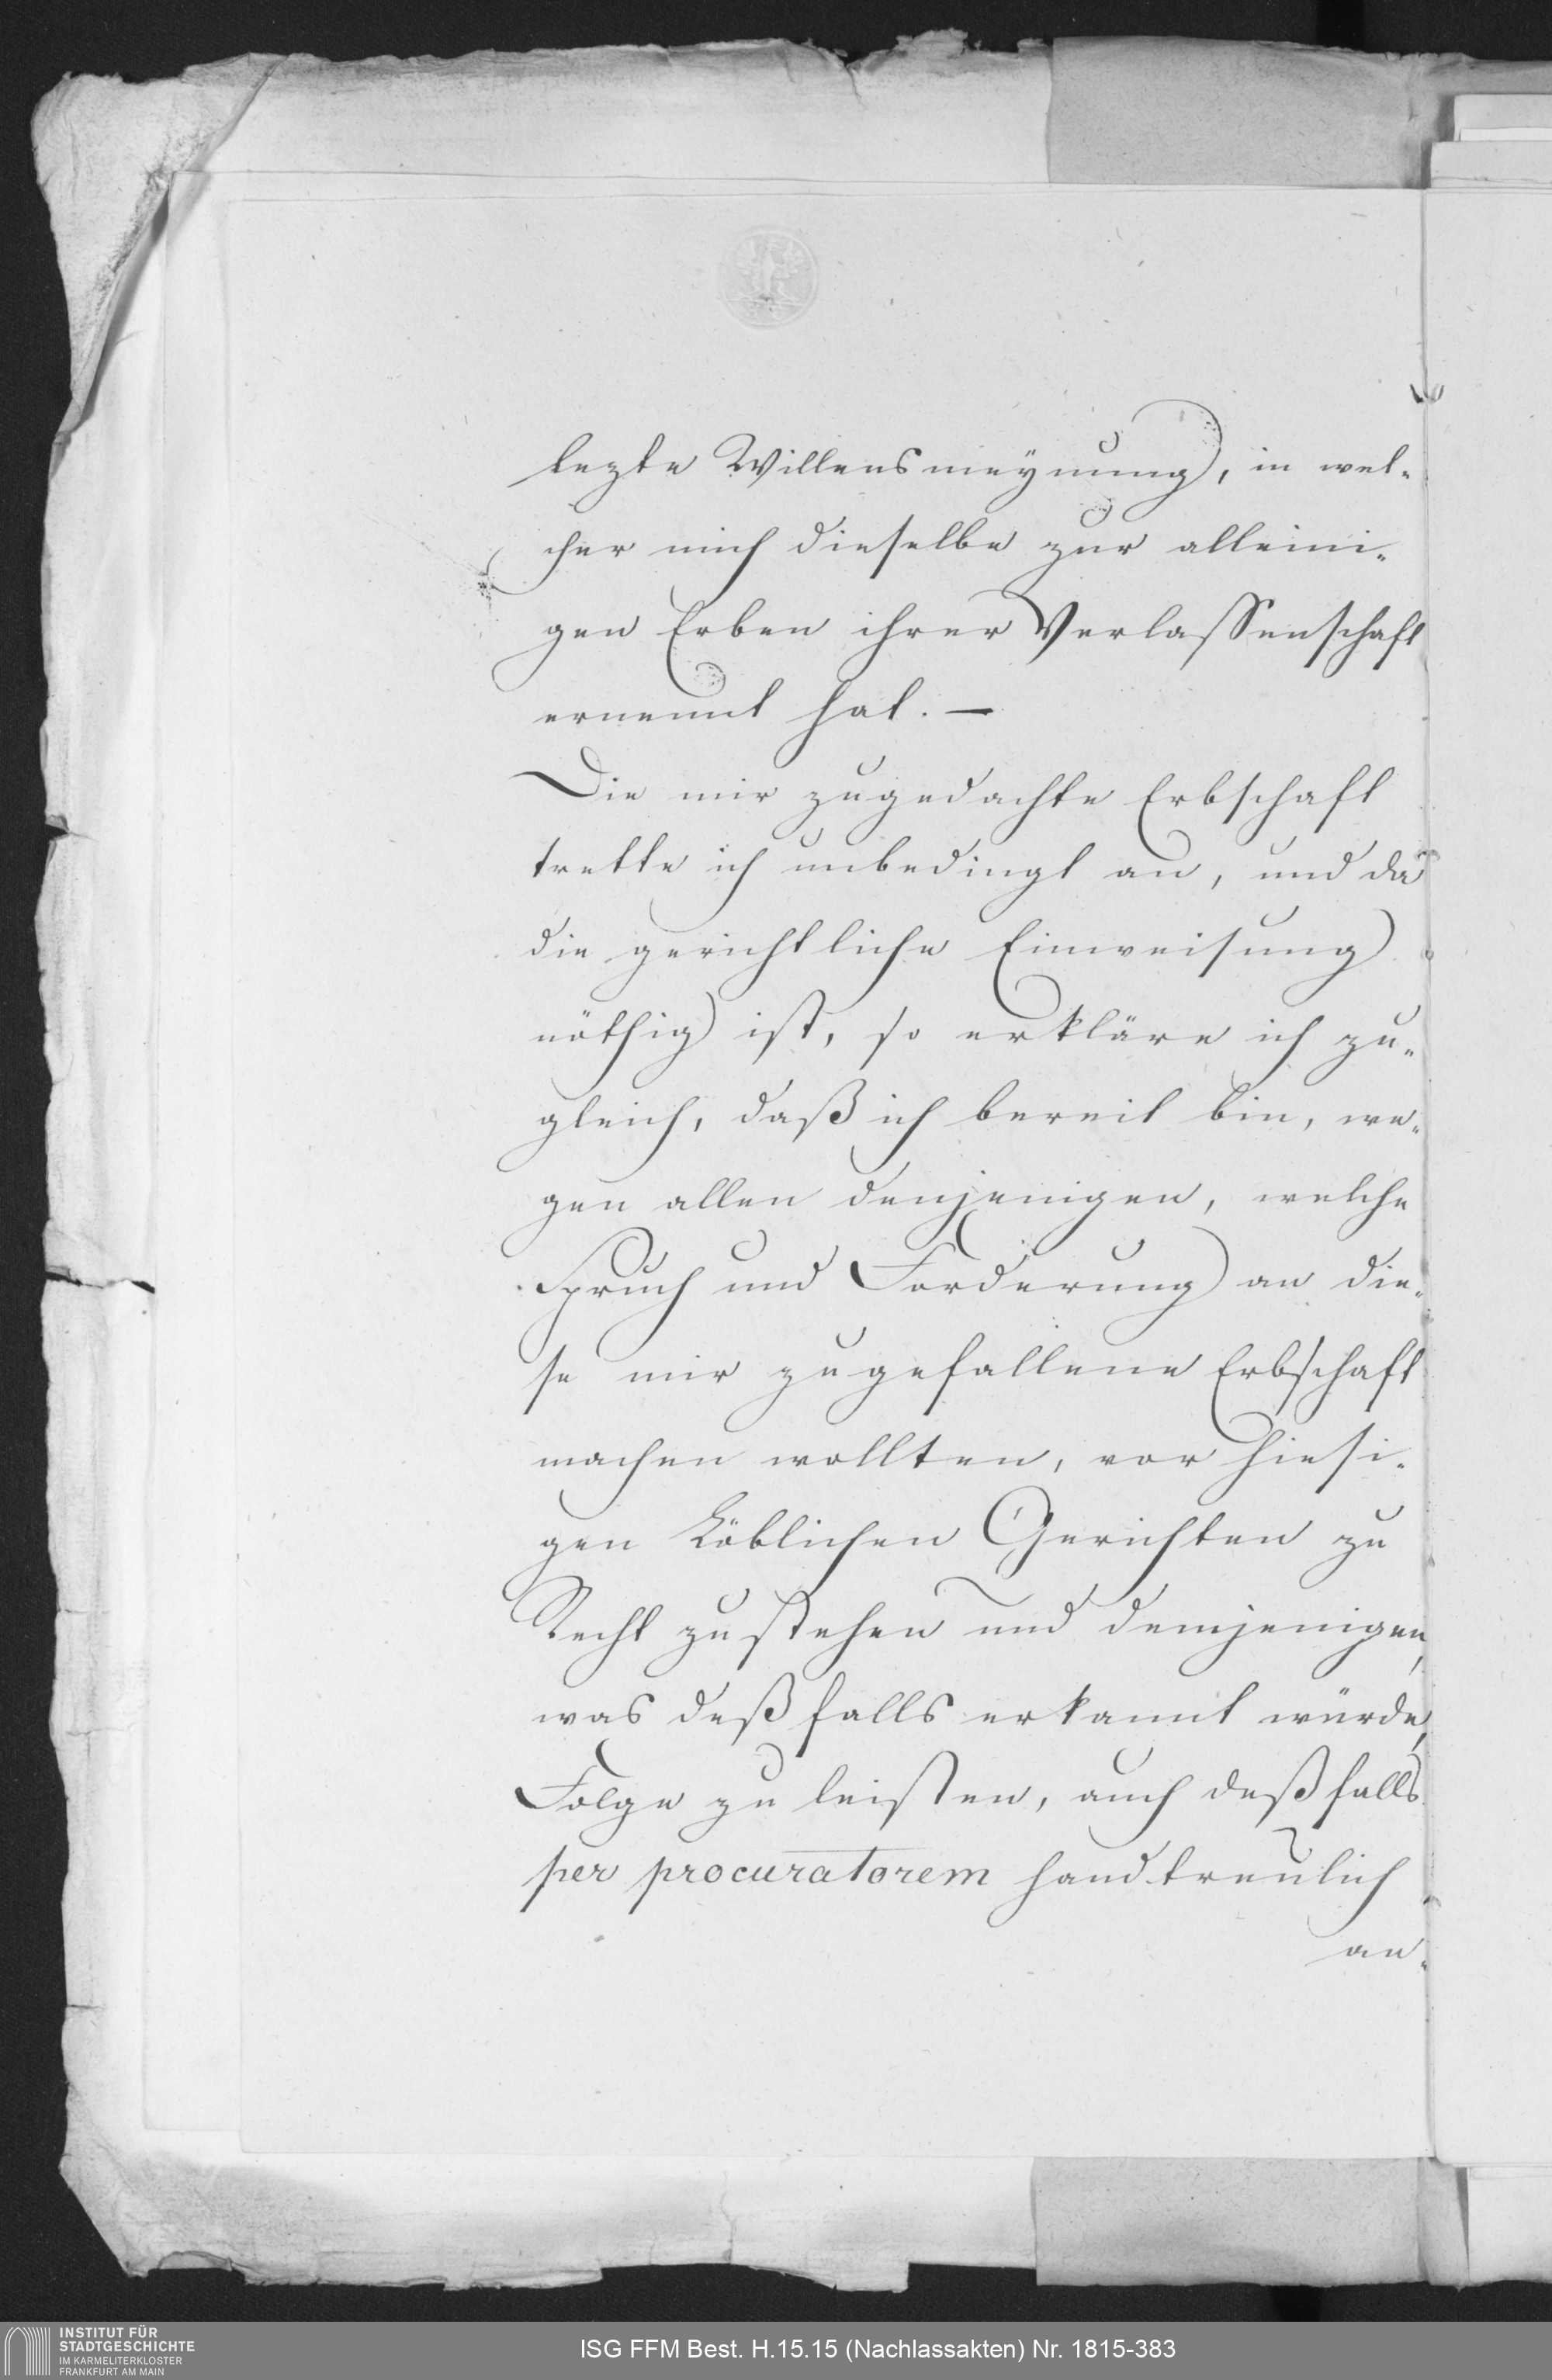 lezte Willensmeynung, in wel-
cher mich dieselbe zur alleini-
gen Erben ihrer Verlassenschaft
ernennt hat. —
Die mir zugedachte Erbschaft
trette ich unbedingt an, und da
die gerichtliche Einweisung
nöthig ist, so erkläre ich zu-
gleich, daß ich bereit bin, we-
gen allen denjenigen, welche
Spruch und Forderung an die-
se mir zugefallene Erbschaft
machen wollten, vor hiesi-
gen Löblichen Gerichten zu
Recht zu stehen und demjenigen,
was deßfalls erkannt würde,
Folge zu leisten, auch deßfalls
per procuratorem handtreulich
an-
INSTITUT FÜR
STADTGESCHICHTE
IM KARMELITERKLOSTER
FRANKFURT AM MAIN
ISG FFM Best. H.15.15 (Nachlassakten) Nr. 1815-383